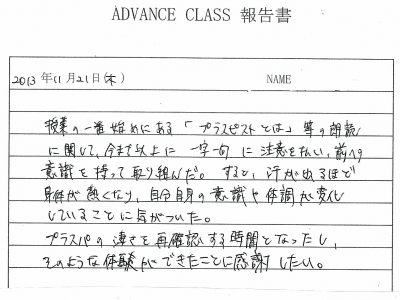 ADVANCE CLASS 報告書
2013年11月21日(木) NAME
授業の一番始めにある「プラスピストとは」等の朗読
に関して、今まで以上に一字一句に注意を払い、前への
意識を持って取り組んだ。すると、汗が出るほど
身体が熱くなり、自分自身の意識や体調が変化
していることに気がついた。
プラスパの凄さを再確認する時間となったし、
そのような体験ができたことに感謝したい。